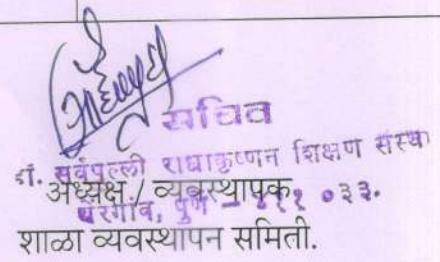 सचिव
डॉ. सर्वपल्ली राधाकृष्णन शिक्षण संस्था
अध्यक्ष / व्यवस्थापक
पुणे - ४११ ०३३.
शाळा व्यवस्थापन समिती.